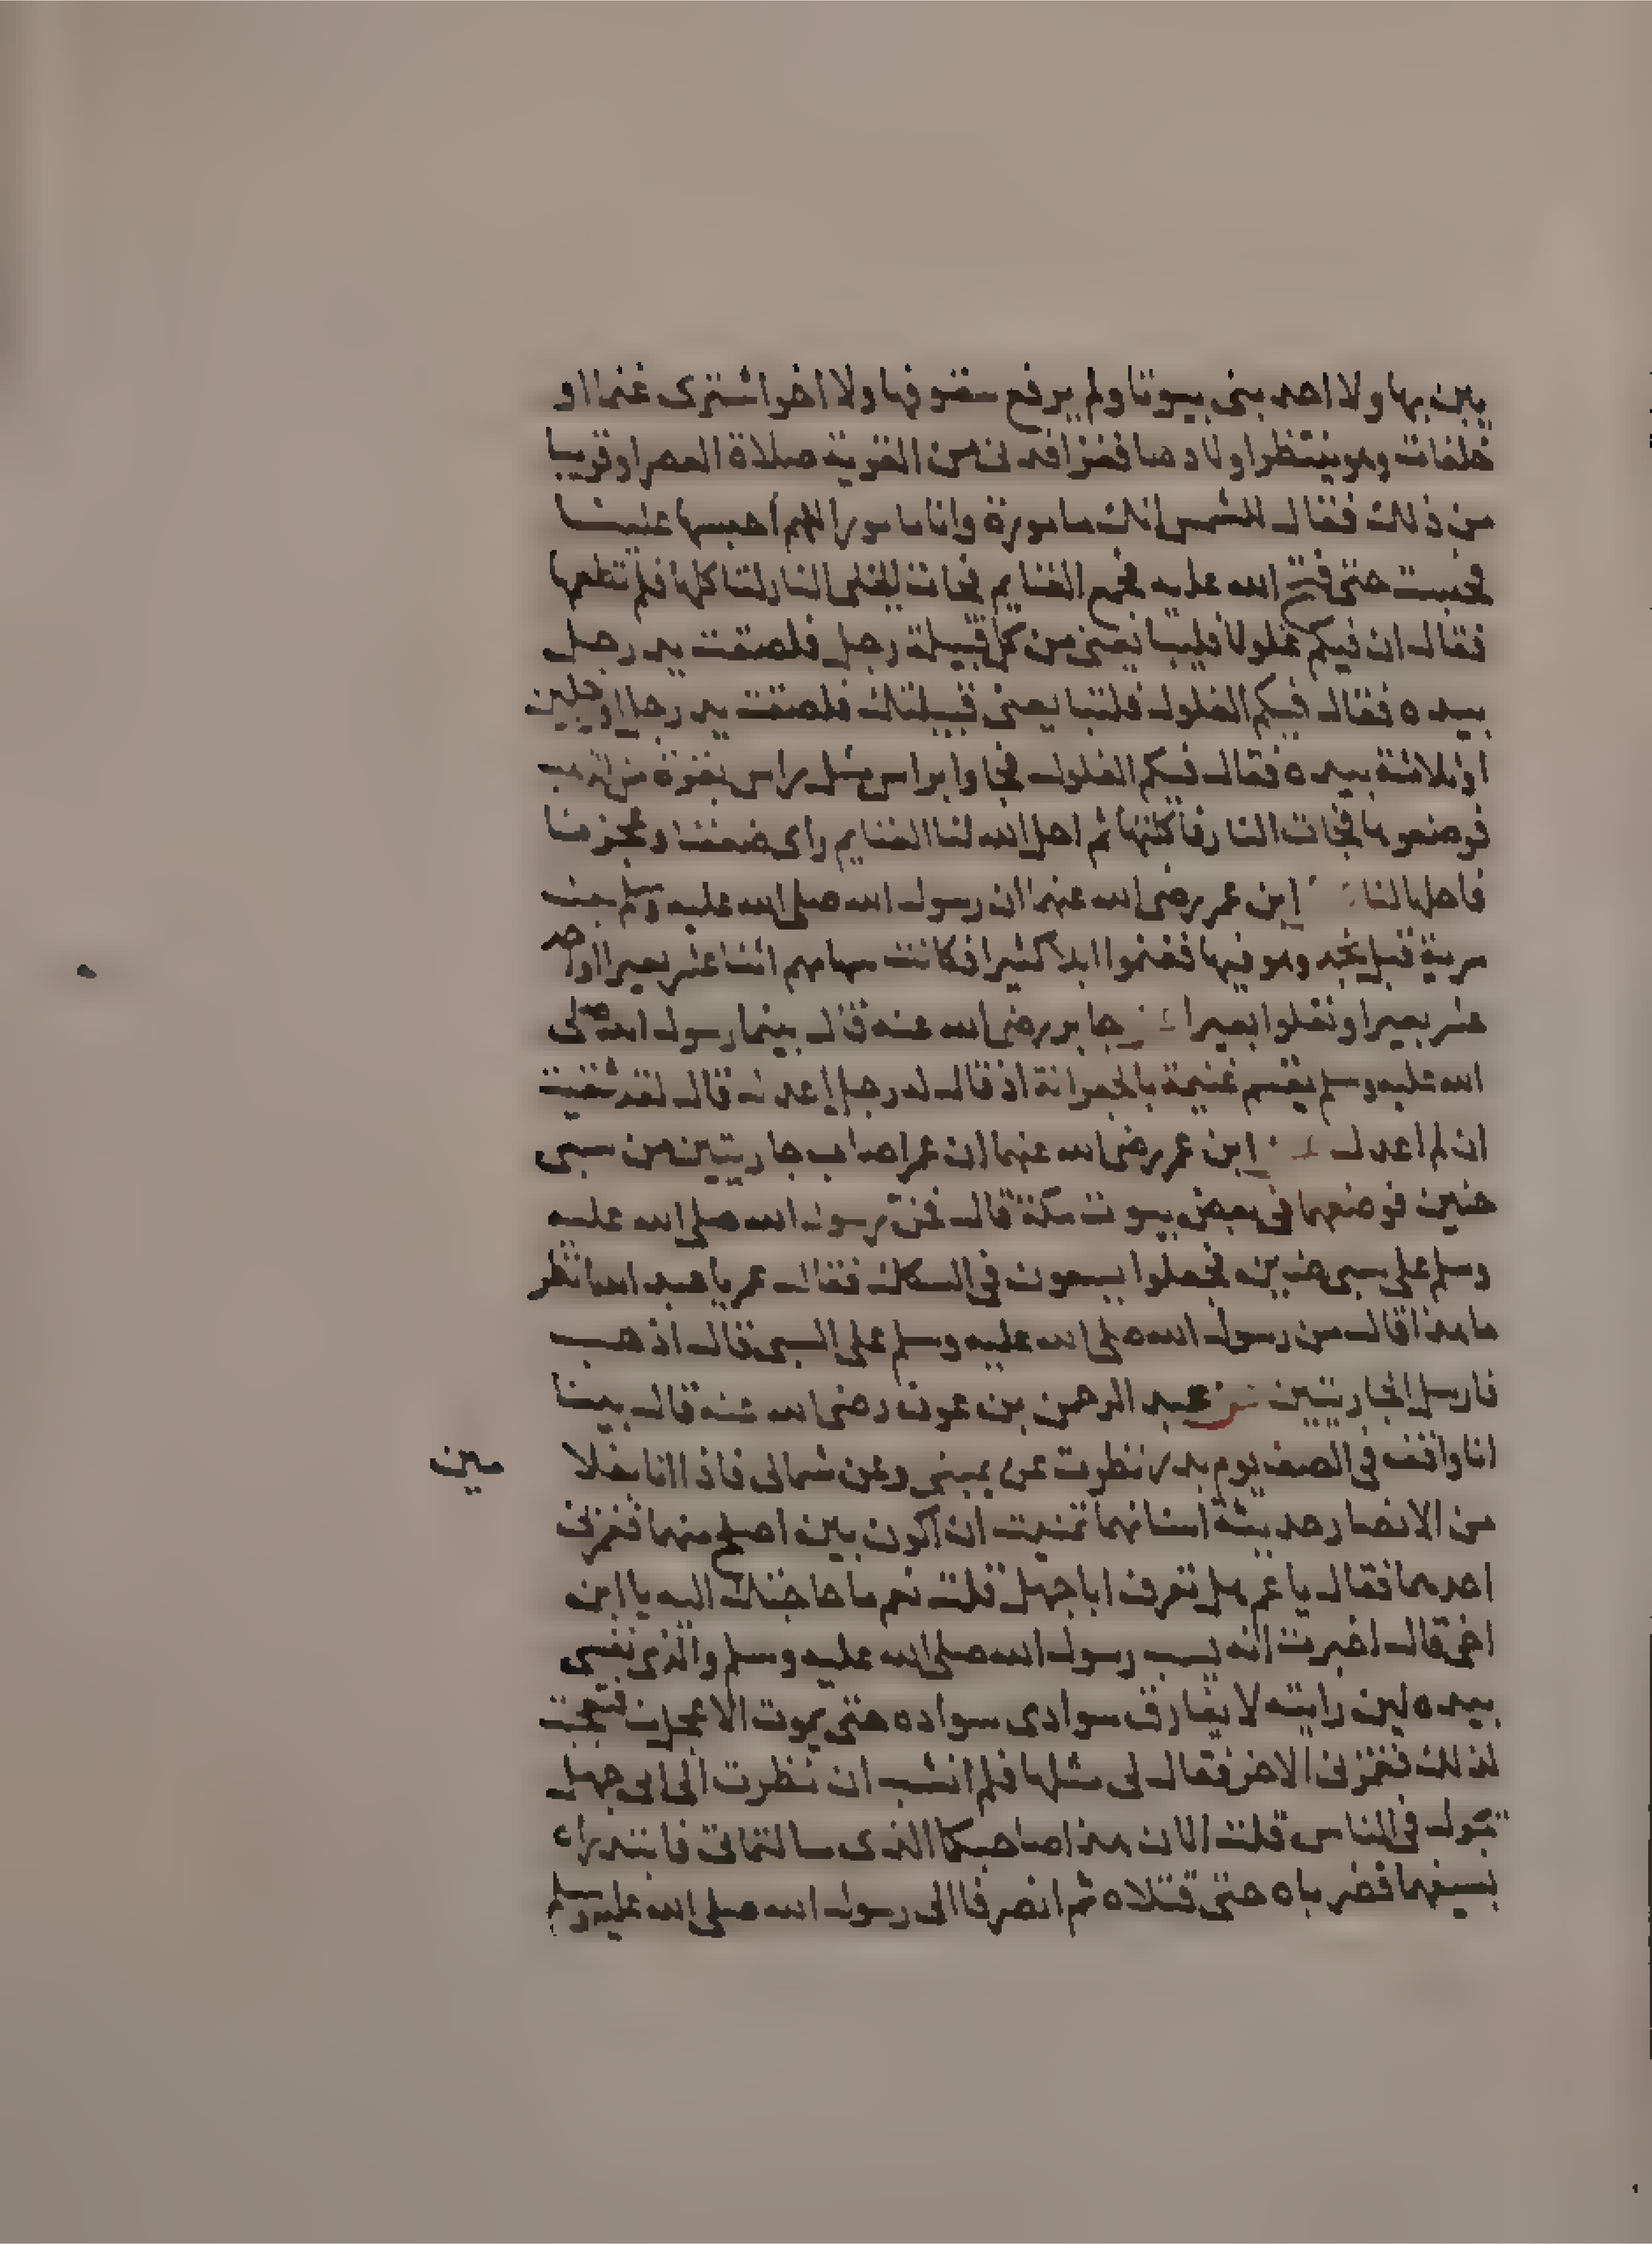 يبن بها ولا احد بنى بيوتا ولم يرفع سقوفها ولا اخر اشترى غنما او
خلفات وهو ينتظر اولادها فغزا فدنى من القرية صلاة العصر او قريبا
من ذلك فقال للشمس انك مامورة وانا مامور اللهم احبسها علينا
فحبست حتى فتح الله عليه فجمع الغنايم فجات يعنى النار لتاكلها فلم تطعمها
فقال ان فيكم غلولا فليبايعنى من كل قبيلة رجل فلصقت يد رجل
بيده فقال فيكم الغلول فلتبايعنى قبيلتك فلصقت يد رجل او رجلين
او ثلاثة بيده فقال فيكم الغلول فجاوا براس مثل راس بقرة من الذهب
فوضعوها فجات النار فاكلتها ثم احل الله لنا الغنايم راى ضعفنا وعجزنا
فاحلها لنا ابن عمر رضى الله عنهما ان رسول الله صلى الله عليه وسلم بعث
سرية قبل نجد وهو فيها فغنموا ابلا كثيرا فكانت سهامهم اثنا عشر بعيرا او احد
عشر بعيرا ونفلوا بعيرا جابر رضى الله عنه قال بينما رسول الله صلى
الله عليه وسلم يقسم غنيمة بالجعرانة اذ قال له رجل اعدل قال لقد شقيت
ان لم اعدل ابن عمر رضى الله عنهما ان عمر اصاب جاريتين من سبى
حنين فوضعهما فى بعض بيوت مكة قال فمن رسول الله صلى الله عليه
وسلم على سبى حنين فجعلوا يسعون فى السكك فقال عمر يا عبد الله انظر
ما هذا قال من رسول الله صلى الله عليه وسلم على السبى قال اذهب
فارسل الجاريتين عن عبد الرحمن بن عوف رضى الله عنه قال بينا
انا واقف فى الصف يوم بدر نظرت عن يمينى وعن شمالى فاذا انا بغلا
مين
من الانصار حديثة اسنانهما تمنيت ان اكون بين اصلح منهما فغمزنى
احدهما فقال يا عم هل تعرف ابا جهل قلت نعم ما حاجتك اليه يا ابن
اخى قال اخبرت انه يسب رسول الله صلى الله عليه وسلم والذى نفسى
بيده لين رايته لا يفارق سوادى سواده حتى يموت الاعجل منا فتعجبت
لذلك فغمزنى الاخر فقال لى مثلها فلم انشب ان نظرت الى ابى جهل
يجول فى الناس قلت الا ان هذا صاحبكما الذى سالتمانى فابتدراه
بسيفهما فضرباه حتى قتلاه ثم انصرفا الى رسول الله صلى الله عليه وسلم